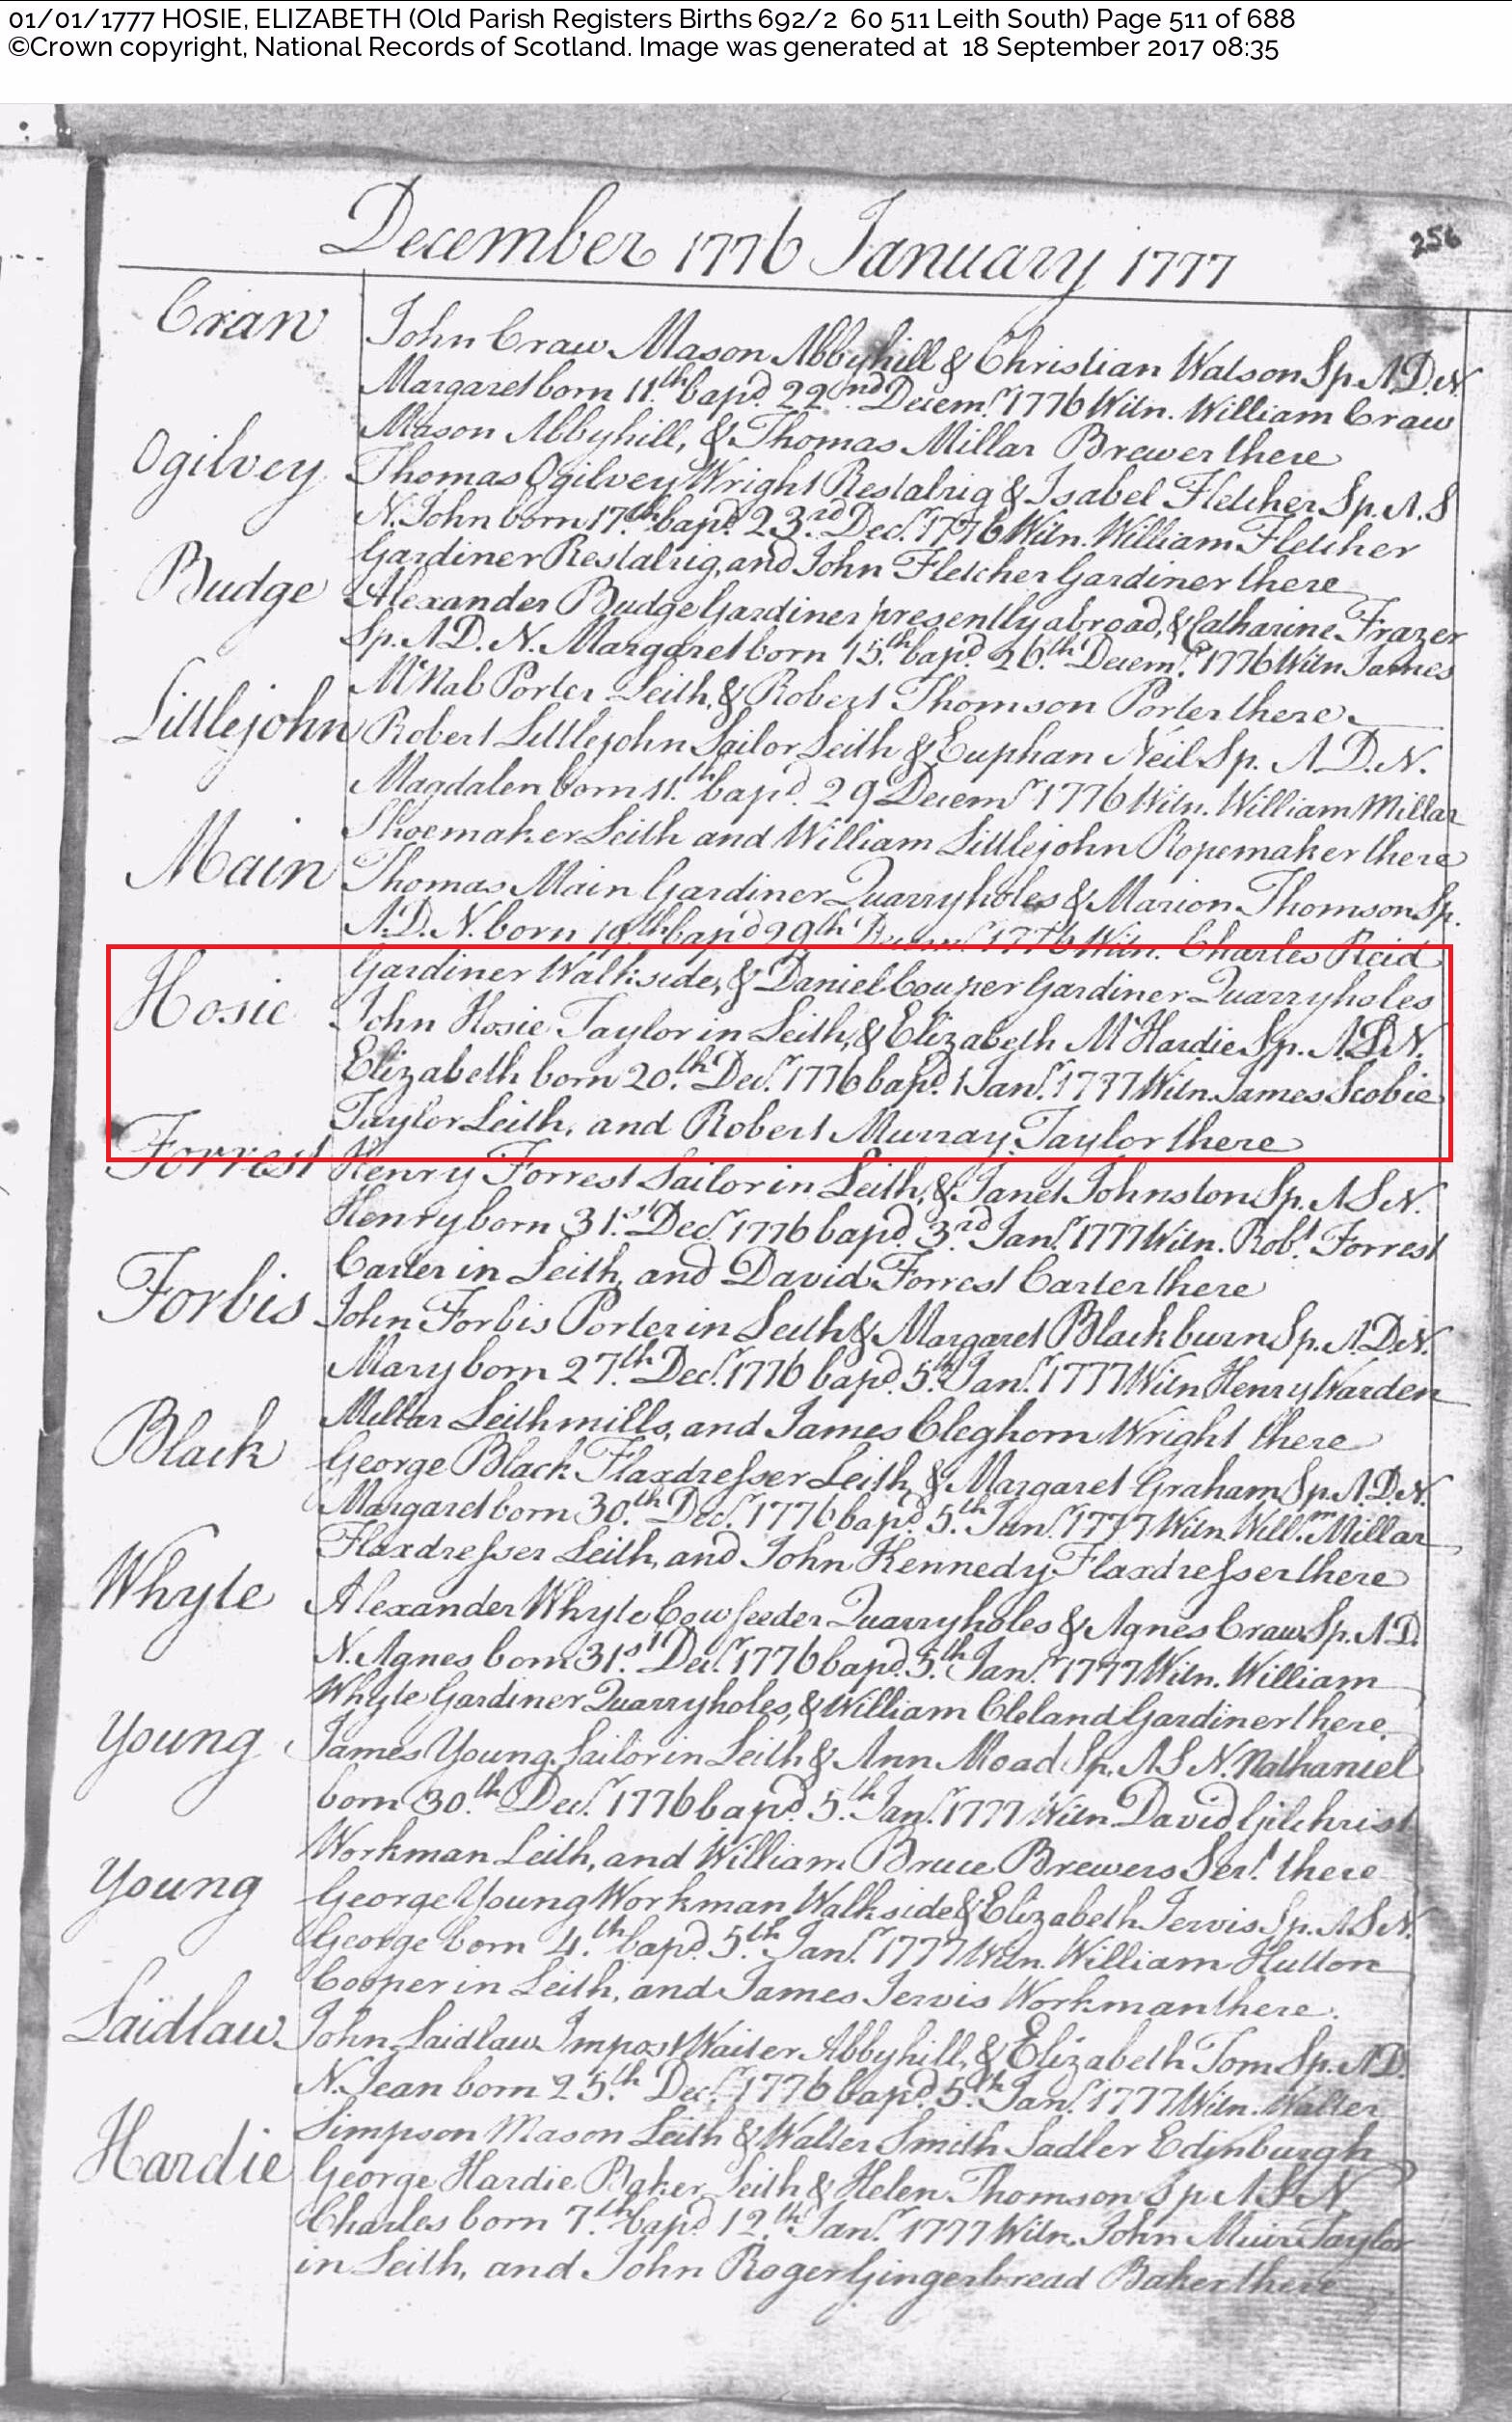 01/01/1777 HOSIE, ELIZABETH (Old Parish Registers Births 692/2 60 511 Leith South) Page 511 of 688
©Crown copyright, National Records of Scotland. Image was generated at 18 September 2017 08:35
December 1776 January 1777
256
Craw John Craw Mason Abbyhill & Christian Watson Sp. A.D.N.
Margaret born 11th bapd. 22nd Decemr. 1776 Witn. William Craw
Mason Abbyhill, & Thomas Millar Brewer there
Ogilvey Thomas Ogilvey Wright Restalrig & Isabel Fletcher Sp. A.S
N. John born 17th bapd. 23rd Decr. 1776 Witn. William Fletcher
Gardiner Restalrig, and John Fletcher Gardiner there
Budge Alexander Budge Gardiner presently abroad, & Catharine Frazer
Sp. A.D.N. Margaret born 15th bapd. 26th Decemr. 1776 Witn James
McNab Porter Leith, & Robert Thomson Porter there
Littlejohn Robert Littlejohn Sailor Leith & Euphan Neil Sp. A.D.N.
Magdalen born 11th bapd. 29 Decemr 1776 Witn. William Millar
Shoemaker Leith and William Littlejohn Ropemaker there
Main Thomas Main Gardiner Quarryholes & Marion Thomson Sp.
A.D.N. born bapd 29th 1776 Witn. Charles Reid
Gardiner Walkside, & Daniel Couper Gardiner Quarryholes
Hosie John Hosie Taylor in Leith, & Elizabeth McHardie Sp. A.D.N.
Elizabeth born 20th Decr. 1776 bapd. 1 Janr. 1777 Witn. James Scobie
Taylor Leith, and Robert Murray Taylor there
Forrest Henry Forrest Sailor in Leith, & Janet Johnston Sp. A S N.
Henry born 31st Decr. 1776 bapd. 3rd Janr. 1777 Witn. Robt. Forrest
Carter in Leith, and David Forrest Carter there
Forbis John Forbis Porter in Leith & Margaret Blackburn Sp. A.D.N.
Mary born 27th Decr. 1776 bapd. 5th Janr. 1777 Witn Henry Warden
Millar Leithmills, and James Cleghorn Wright there
Black George Black Flaxdresser Leith, & Margaret Graham Sp. A.D.N.
Margaret born 30th Decr. 1776 bapd. 5th Janr. 1777 Witn. Willm. Millar
Flaxdresser Leith, and John Kennedy Flaxdresser there
Whyte Alexander Whyte Cowfeeder Quarryholes & Agnes Craw Sp. A.D.
N. Agnes born 31st Decr. 1776 bapd. 5th Janr. 1777 Witn. William
Whyte Gardiner Quarryholes, & William Cleland Gardiner there
Young James Young Sailor in Leith & Ann Moad Sp. A S N. Nathaniel
born 30th Decr. 1776 bapd. 5th Janr. 1777 Witn David Gilchrist
Workman Leith, and William Bruce Brewers Sert. there
Young George Young Workman Walkside & Elizabeth Jervis Sp. A S N.
George born 4th bapd. 5th Janr. 1777 Witn. William Hutton
Cooper in Leith, and James Jervis Workman there.
Laidlaw John Laidlaw Impost Waiter Abbyhill, & Elizabeth Tom Sp. A.D.
N. Jean born 25th Decr. 1776 bapd. 5th Janr. 1777 Witn. Walter
Simpson Mason Leith & Walter Smith Sadler Edinburgh
Hardie George Hardie Baker Leith & Helen Thomson Sp A S N
Charles born 7th bapd 12th Janr. 1777 Witn. John Muir Taylor
in Leith, and John Roger Gingerbread Baker there